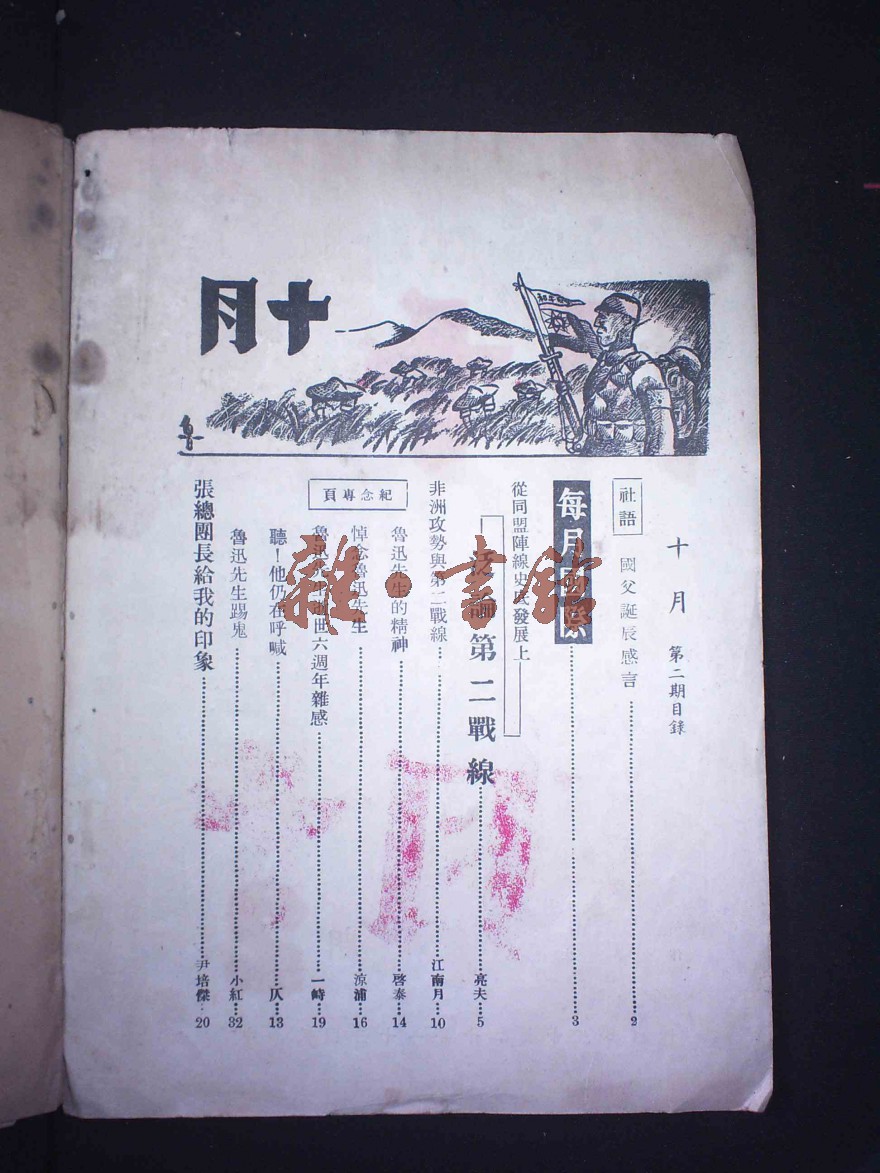 十月
魯
十月 第二期目錄
社語 國父誕辰感言 2
每月國際 3
從同盟陣線史氏發展上
論第二戰線 亮夫 5
非洲攻勢與第二戰線 江南月 10
紀念專頁
魯迅先生的精神 啓泰 14
悼念魯迅先生 涼浦 16
魯迅先生逝世六週年雜感 一峙 19
聽！他仍在呼喊 仄 13
魯迅先生踢鬼 小紅 32
張總團長給我的印象 尹培傑 20
雜·書館